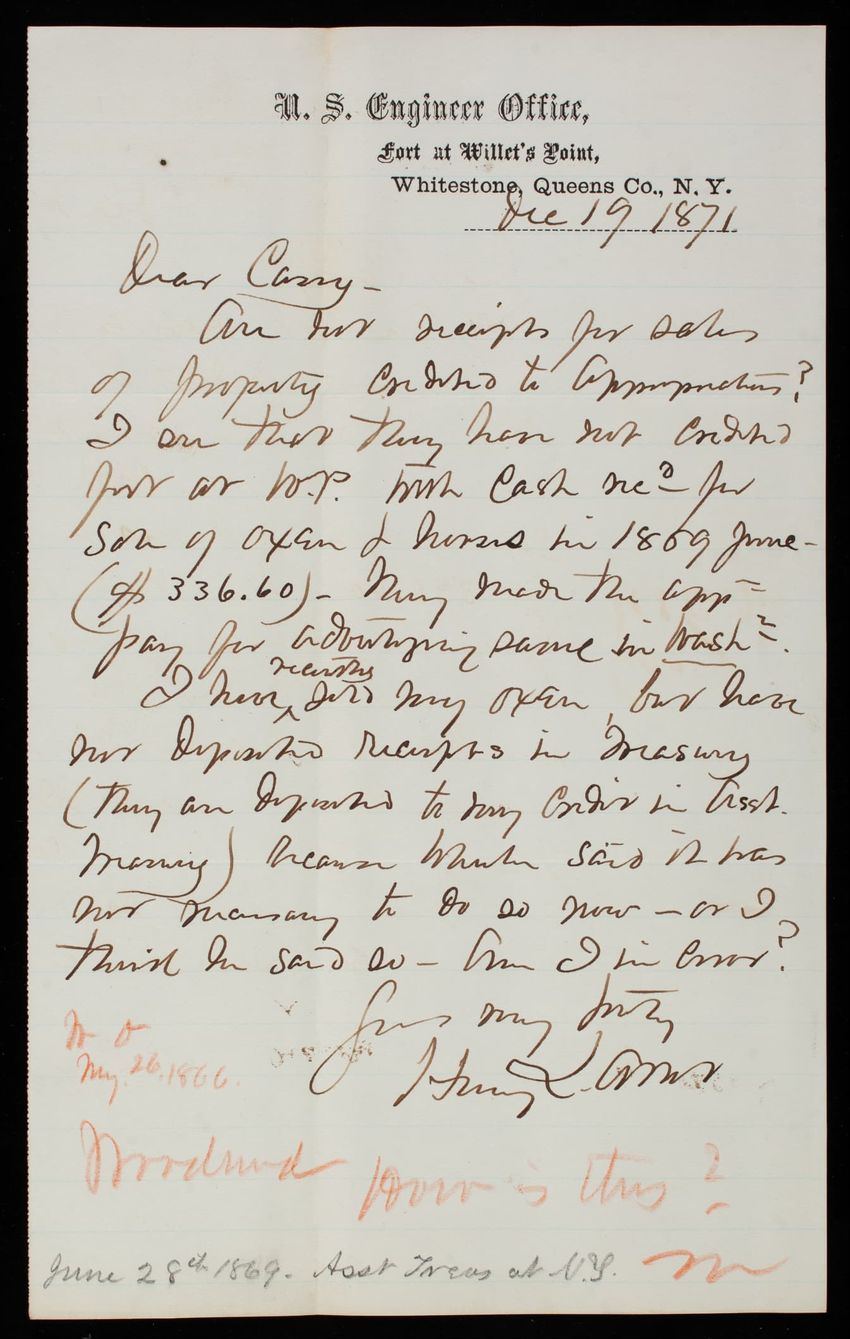 U. S. Engineer Office,
Fort at Willet's Point,
Whitestone, Queens Co., N. Y.
Dec 19 1871
Dear Casey –
Are not receipts for sales
of property credited to appropriations?
I see that they have not credited
fort at W.P. with cash recd for
Sale of oxen & horses in 1869 June –
($ 336.60) – They made the appn
pay for advertising same in Washn.
I have recently sold my oxen, but have
not deposited receipts in Treasury
(they are deposited to my credit in Asst.
Treasury) because Wheeler said it was
not necessary to do so now – or I
think he said so – Am I in error?
Yours very truly
Henry L. Abbot
May. 26. 1866.
Woodruff How is this?
June 28th 1869. Asst Treas at N.Y.